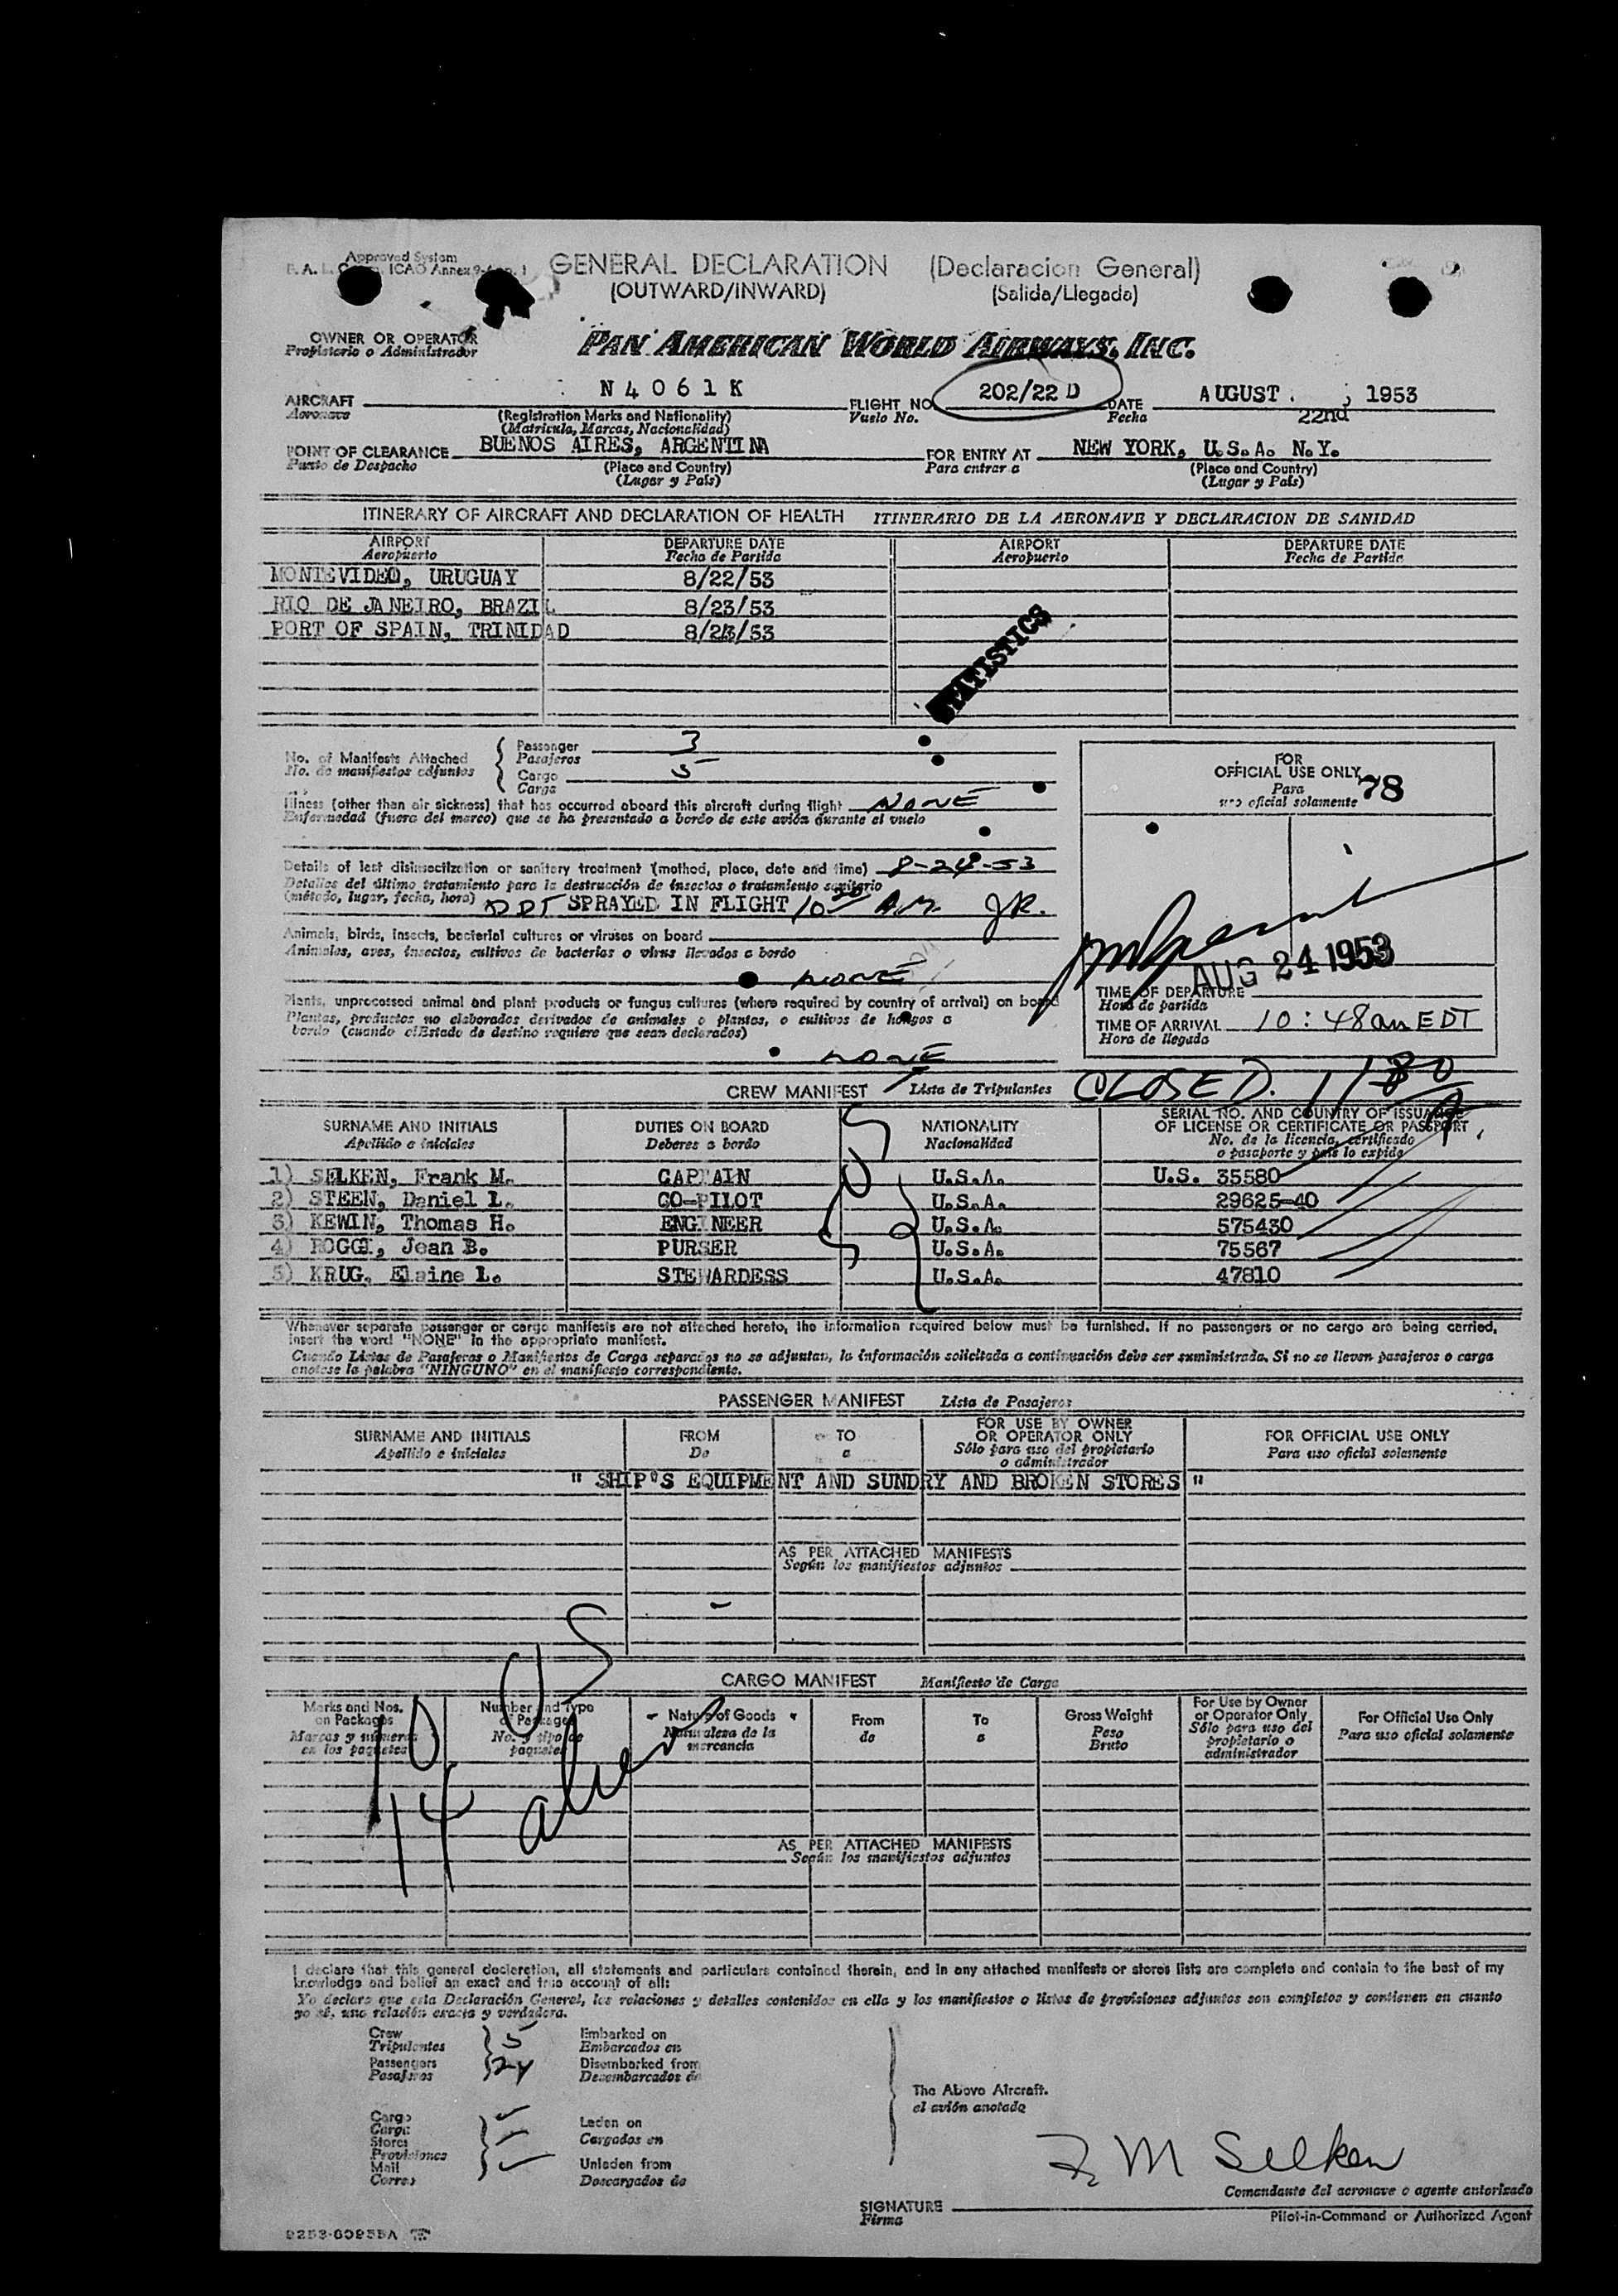 Approved System
F. A. L. ICAO Annex 9-App. 1
GENERAL DECLARATION (Declaracion General)
(OUTWARD/INWARD) (Salida/Llegada)
OWNER OR OPERATOR
Propietario o Administrador
PAN AMERICAN WORLD AIRWAYS, INC.
AIRCRAFT N 4 0 6 1 K FLIGHT NO. 202/22 D DATE AUGUST 22nd, 1953
Aeronave (Registration Marks and Nationality) Vuelo No. Fecha
(Matricula, Marcas, Nacionalidad)
POINT OF CLEARANCE BUENOS AIRES, ARGENTINA FOR ENTRY AT NEW YORK, U.S.A. N.Y.
Punto de Despacho (Place and Country) Para entrar a (Place and Country)
(Lugar y País) (Lugar y País)
ITINERARY OF AIRCRAFT AND DECLARATION OF HEALTH ITINERARIO DE LA AERONAVE Y DECLARACION DE SANIDAD
AIRPORT DEPARTURE DATE AIRPORT DEPARTURE DATE
Aeropuerto Fecha de Partida Aeropuerto Fecha de Partida
MONTEVIDEO, URUGUAY 8/22/53
RIO DE JANEIRO, BRAZIL 8/23/53
PORT OF SPAIN, TRINIDAD 8/23/53
STATISTICS
No. of Manifests Attached
No. de manifiestos adjuntos
Passenger 3
Pasajeros
Cargo 5
Carga
Illness (other than air sickness) that has occurred aboard this aircraft during flight NONE
Enfermedad (fuera del mareo) que se ha presentado a bordo de este avión durante el vuelo
Details of last disinsectization or sanitary treatment (method, place, date and time) 8-24-53
Detalles del último tratamiento para la destrucción de insectos o tratamiento sanitario
(método, lugar, fecha, hora) DDT SPRAYED IN FLIGHT 10 A.M. JR.
Animals, birds, insects, bacterial cultures or viruses on board
Animales, aves, insectos, cultivos de bacterias o virus llevados a bordo
NONE
Plants, unprocessed animal and plant products or fungus cultures (where required by country of arrival) on board
Plantas, productos no elaborados derivados de animales o plantas, o cultivos de hongos a
bordo (cuando el Estado de destino requiere que sean declarados)
NONE
FOR
OFFICIAL USE ONLY
Para
uso oficial solamente
78
AUG 24 1953
TIME OF DEPARTURE
Hora de partida
TIME OF ARRIVAL 10:48 am EDT
Hora de llegada
CLOSED.
CREW MANIFEST Lista de Tripulantes
SURNAME AND INITIALS DUTIES ON BOARD NATIONALITY SERIAL NO. AND COUNTRY OF ISSUANCE
OF LICENSE OR CERTIFICATE OR PASSPORT
Apellido e iniciales Deberes a bordo Nacionalidad No. de la licencia, certificado
o pasaporte y país lo expide
1) SELKEN, Frank M. CAPTAIN U.S.A. U.S. 35580
2) STEEN, Daniel L. CO-PILOT U.S.A. 29625-40
3) KEWIN, Thomas H. ENGINEER U.S.A. 575430
4) POGGI, Jean B. PURSER U.S.A. 75567
5) KRUG, Elaine L. STEWARDESS U.S.A. 47810
5 US
Whenever separate passenger or cargo manifests are not attached hereto, the information required below must be furnished. If no passengers or no cargo are being carried,
insert the word "NONE" in the appropriate manifest.
Cuando Listas de Pasajeros o Manifiestos de Carga separados no se adjuntan, la información solicitada a continuación debe ser suministrada. Si no se lleven pasajeros o carga
anotese la palabra "NINGUNO" en el manifiesto correspondiente.
PASSENGER MANIFEST Lista de Pasajeros
SURNAME AND INITIALS FROM TO FOR USE BY OWNER
OR OPERATOR ONLY FOR OFFICIAL USE ONLY
Apellido e iniciales De a Sólo para uso del propietario
o administrador Para uso oficial solamente
" SHIP'S EQUIPMENT AND SUNDRY AND BROKEN STORES "
AS PER ATTACHED MANIFESTS
Según los manifiestos adjuntos
CARGO MANIFEST Manifiesto de Carga
Marks and Nos.
on Packages
Marcas y números
en los paquetes
Number and Type
of Packages
No. y tipo de
paquetes
Nature of Goods
Naturaleza de la
mercancia
From
de
To
a
Gross Weight
Peso
Bruto
For Use by Owner
or Operator Only
Sólo para uso del
propietario o
administrador
For Official Use Only
Para uso oficial solamente
10 US
14 aliens
AS PER ATTACHED MANIFESTS
Según los manifiestos adjuntos
I declare that this general declaration, all statements and particulars contained therein, and in any attached manifests or stores lists are complete and contain to the best of my
knowledge and belief an exact and true account of all:
Yo declaro que esta Declaración General, las relaciones y detalles contenidos en ella y los manifiestos o listas de provisiones adjuntos son completos y contienen en cuanto
yo sé, una relación exacta y verdadera.
Crew 5 Embarked on
Tripulantes Embarcados en
Passengers 24 Disembarked from
Pasajeros Desembarcados de
Cargo
Carga Laden on
Stores Cargados en
Provisiones
Mail Unladen from
Correo Descargados de
The Above Aircraft.
el avión anotado
F M Selken
Comandante del aeronave o agente autorizado
SIGNATURE
Firma
Pilot-in-Command or Authorized Agent